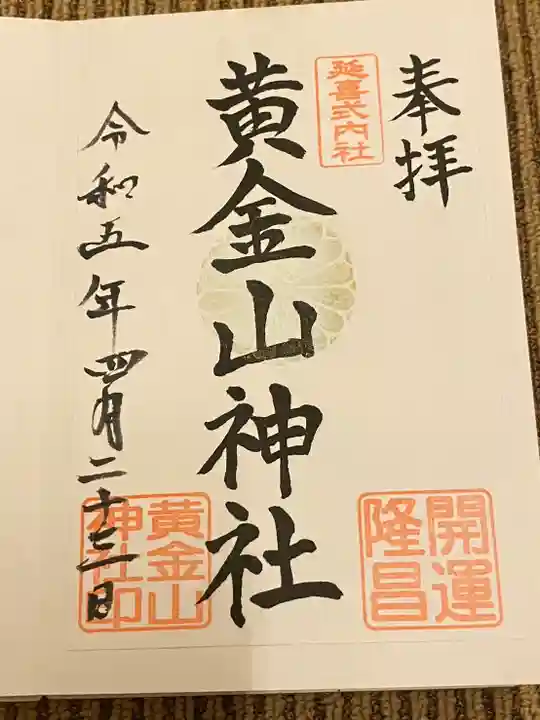 奉拝
延喜式内社
開運
隆昌
黄金山神社
黄金山
神社印
令和五年四月二十三日